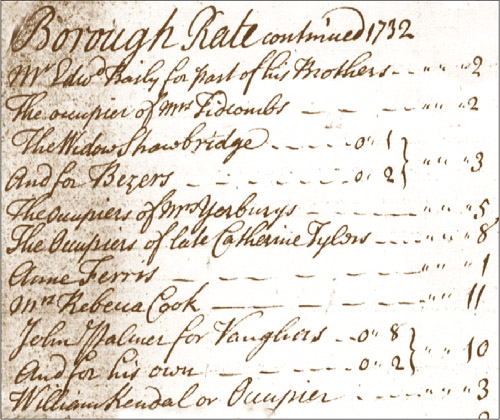 Borough Rate continued 1732
Mr Edwd Baily for part of his Brothers - - " " 2
The occupier of Mrs Tidcombs - - - " " 2
The Widow Shawbridge - - - - 0 " 1
" " 3
And for Bezers - - - - 0 " 2
The occupiers of Mrs Yerburys - - - - " " 5
The Occupiers of late Catherine Tylers - - - " " 8
Anne Ferris - - - - - - " " 1
Mrs Rebecca Cook - - - - - " " 11
John Palmer for Vaughers - - 0 " 8
" " 10
And for his own - - - - 0 " 2
William Kendal or Occupier - - - " " 3